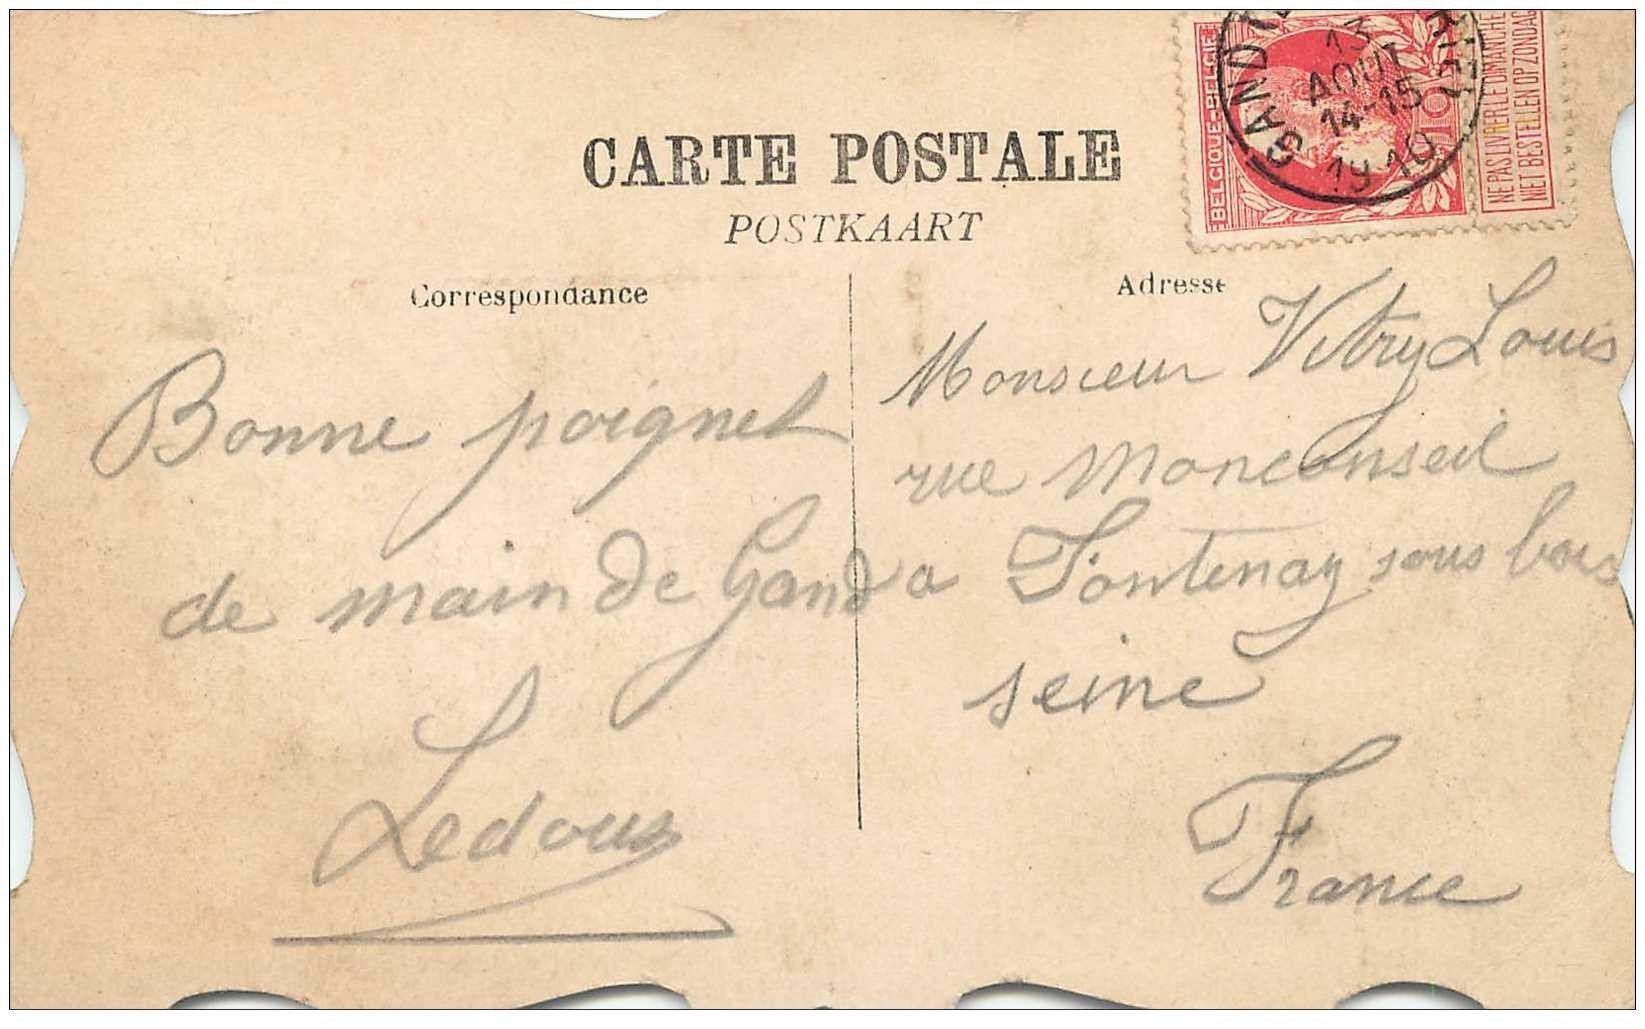 CARTE POSTALE
POSTKAART
Correspondance
Adresse
BELGIQUE-BELGIË
10
NE PAS LIVRER LE DIMANCHE
NIET BESTELLEN OP ZONDAG
13
AOUT
14-15
1910
Bonne poignet
de main de Gand
Ledoux
Monsieur Vitry Louis
rue Monconseil
a Fontenay sous bois
seine
France